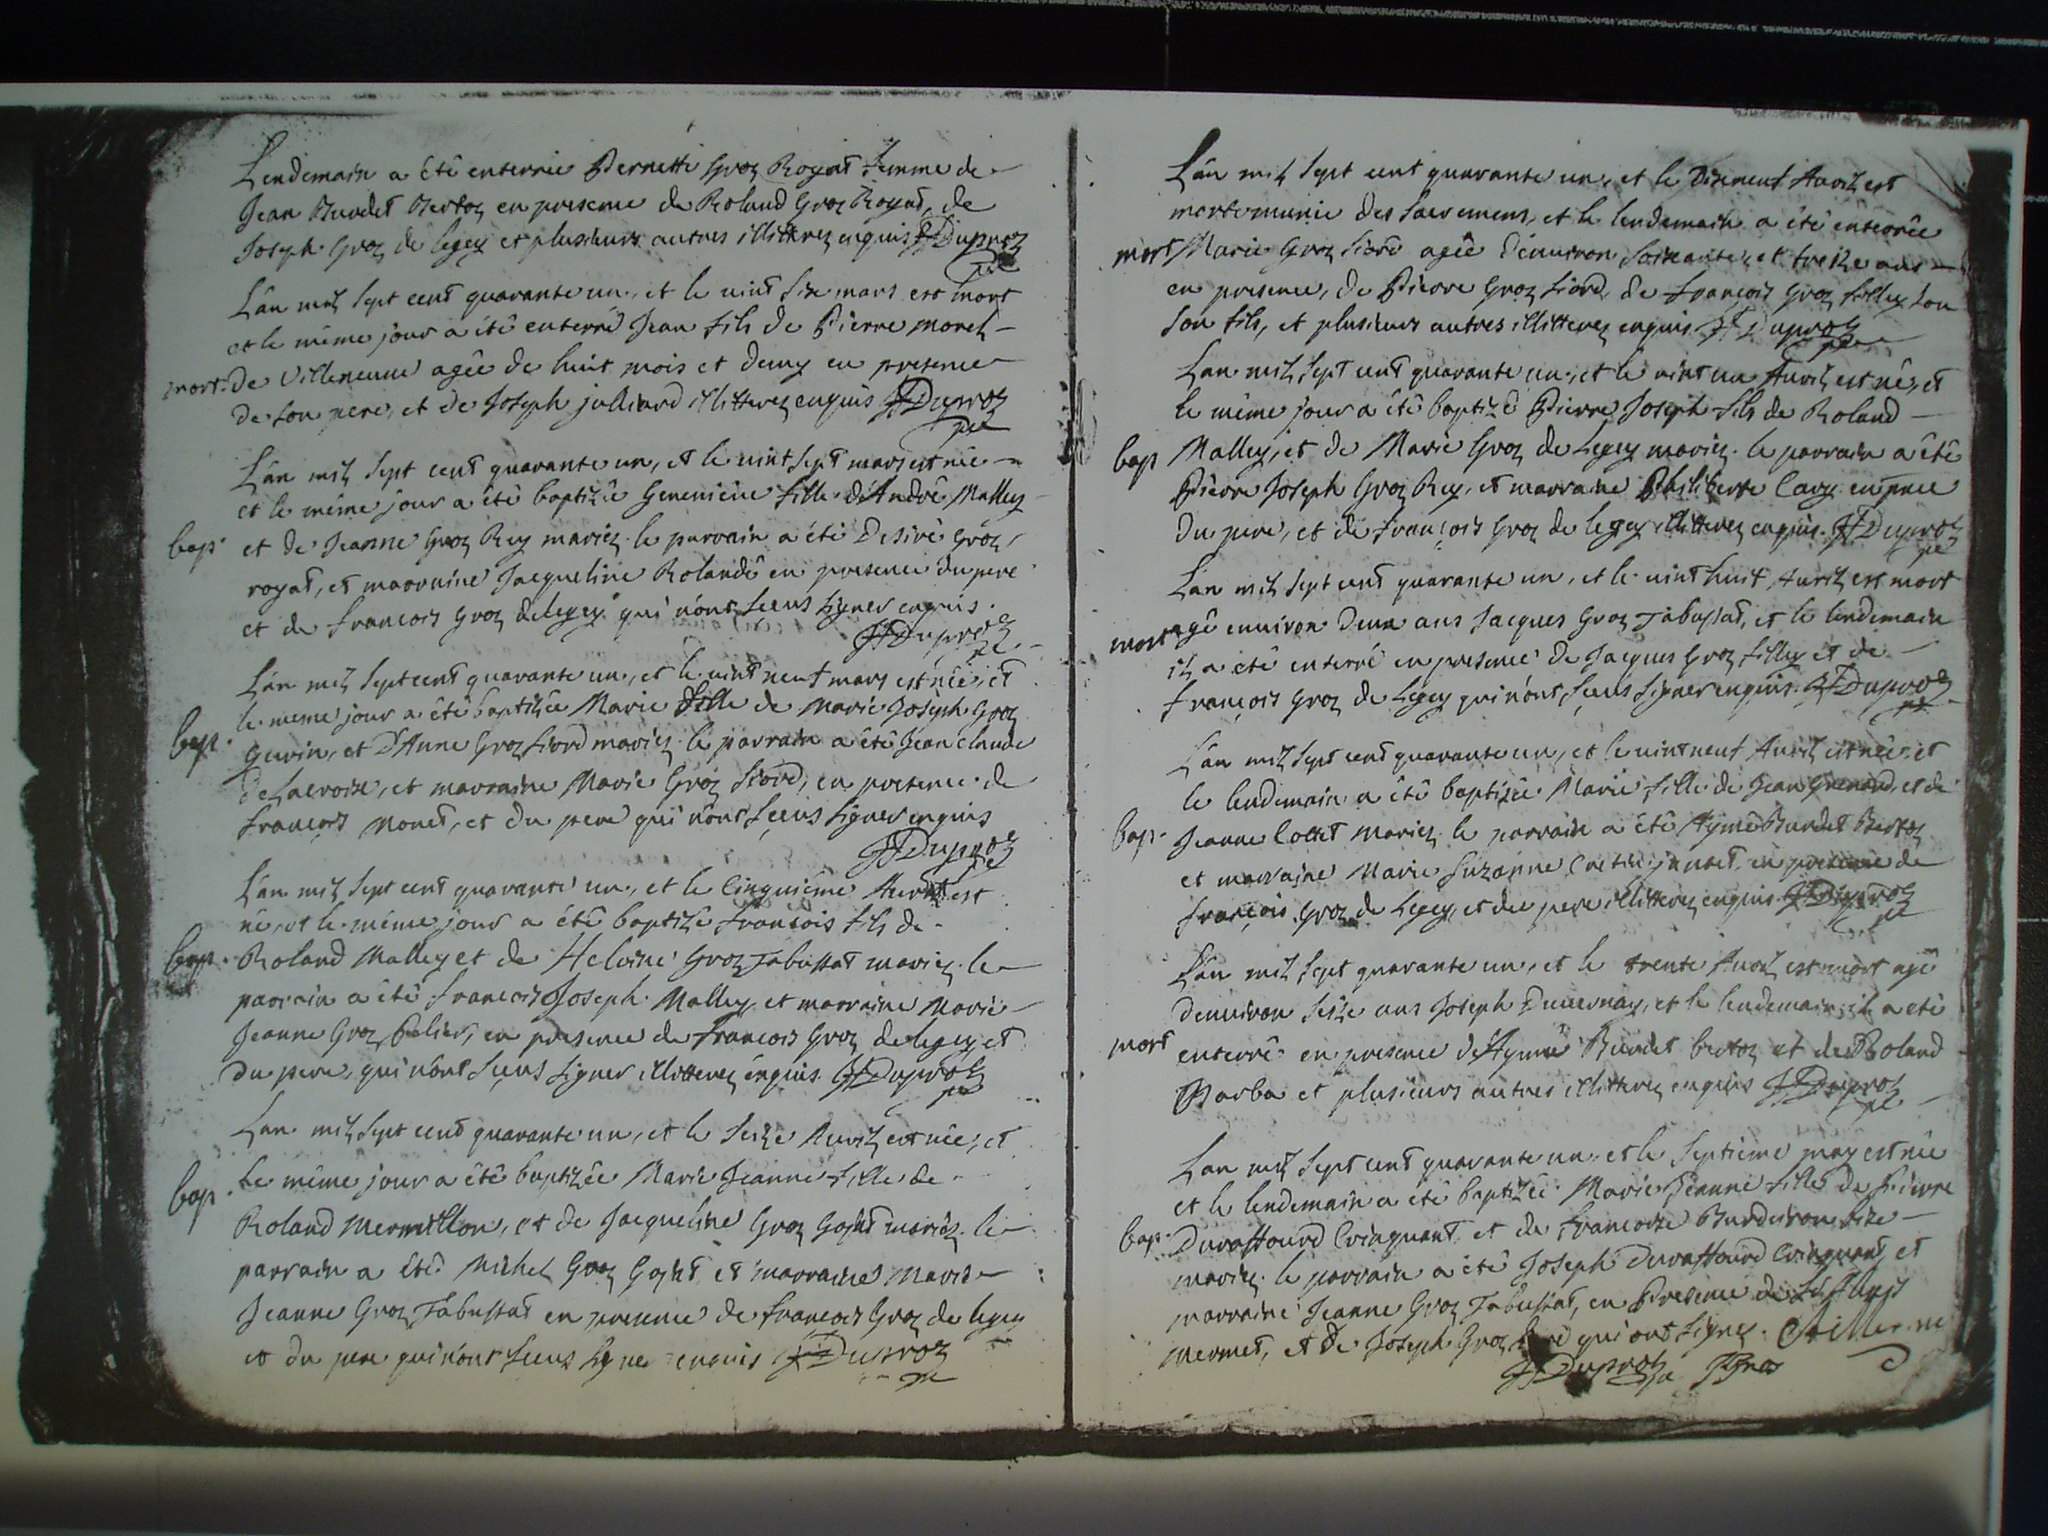 Lendemain a été enterrée Pernette Groz Royat femme de
Jean Burdet Bertoz en presence de Roland Groz Royat, de
Joseph Groz de legey et plusieurs autres illitterez enquis JfDuproz
pre
L'an mil sept cent quarante un, et le vint six mars est mort
et le même jour a été enterré Jean fils de Pierre morel
mort. de Villeneuve agée de huit mois et demy en presence
de son pere, et de Joseph julliard illitterez enquis JfDuproz
pre
L'an mil sept cent quarante un, et le vint sept mars est née
et le même jour a été baptizée Genevieve fille d'André Malley
bap. et de Jeanne Groz Rey mariez. le parrain a été Desiré Groz
royat, et marraine Jacqueline Rolande en presence du pere
et de francois Groz de legey qui n'ont sceus signer enquis.
JfDuproz
pre
L'an mil sept cent quarante un, et le vint neuf mars est née, et
le meme jour a été baptizée Marie fille de Marie Joseph Groz
bap. Gurin, et d'Anne Groz fiord mariez. le parrain a été Jean claude
delacroix, et marraine Marie Groz fiord, en presence de
françois monet, et du pere qui n'ont sceus signer enquis
JfDuproz
pre
L'an mil sept cent quarante un, et le Cinquiéme Avril est
né, et le même jour a été baptizé francois fils de
bap. Roland Malley et de Heloine Groz Tabussat mariez. le
parrain a été francois Joseph Malley, et marraine Marie
Jeanne Groz Pelier, en presence de francois Groz de legey et
du pere, qui n'ont sceus signer illitterez enquis. JfDuproz
pre
L'an mil sept cent quarante un, et le seize Avril est née, et
Le même jour a été baptizée Marie Jeanne fille de
bap. Roland Mermillon, et de Jacqueline Groz Gojat mariez. le
parrain a été Michel Groz Gojat, et marraine Marie
Jeanne Groz Tabussat en presence de francois Groz de legey
et du pere qui n'ont sceus signe enquis JfDuproz
pre
L'an mil sept cent quarante un, et le Dixneuf Avril est
morte munie des sacremens, et le lendemain a été enterrée
mort Marie Groz fiord agée d'environ soixante et treize ans
en presence, de Pierre Groz fiord, de francois Groz filley son
son fils, et plusieurs autres illitterez enquis. JfDuproz
pre
L'an mil sept cent quarante un, et le vint un Avril est né, et
le même jour a été baptizé Pierre Joseph fils de Roland
bap Malley, et de Marie Groz de Legey mariez. le parrain a été
Pierre Joseph Groz Rey, et marraine Philiberte Cary en pnce
du pere, et de françois Groz de legey illitterez enquis. JfDuproz
pre
L'an mil sept cent quarante un, et le vint huit Avril est mort
mort agé environ deux ans Jacques Groz Tabussat, et le lendemain
il a été enterré en presence de Jacques Groz filley et de
françois Groz de Legey qui n'ont sceus signer enquis. JfDuproz
pre
L'an mil sept cent quarante un, et le vint neuf Avril est née, et
le lendemain a été baptizée Marie fille de Jean Grenard, et de
bap. Jeanne Collet mariez. le parrain a été Aymé Burdet Bertoz
et marraine Marie Suzanne en presence de
françois Groz de Legey, et du pere illitterez enquis JfDuproz
pre
L'an mil sept quarante un, et le trente Avril est mort agé
d'environ seize ans Joseph Duvernay, et le lendemain il a eté
mort enterré en presence d'Aymé Burdet bertoz et de Roland
Barba et plusieurs autres illitterez enquis JfDuproz
pre
L'an mil sept cent quarante un, et le septieme may est née
et le lendemain a été baptizée Marie Jeanne fille de Pierre
bap. Duraffourd Criaquant et de francoise Burdeyron
mariez. le parrain a été Joseph Duraffourd Criaquant, et
marraine Jeanne Groz Tabussat, en Presence de
mermet, et de Joseph Groz qui ont signez.
JfDuproz pre JGroz